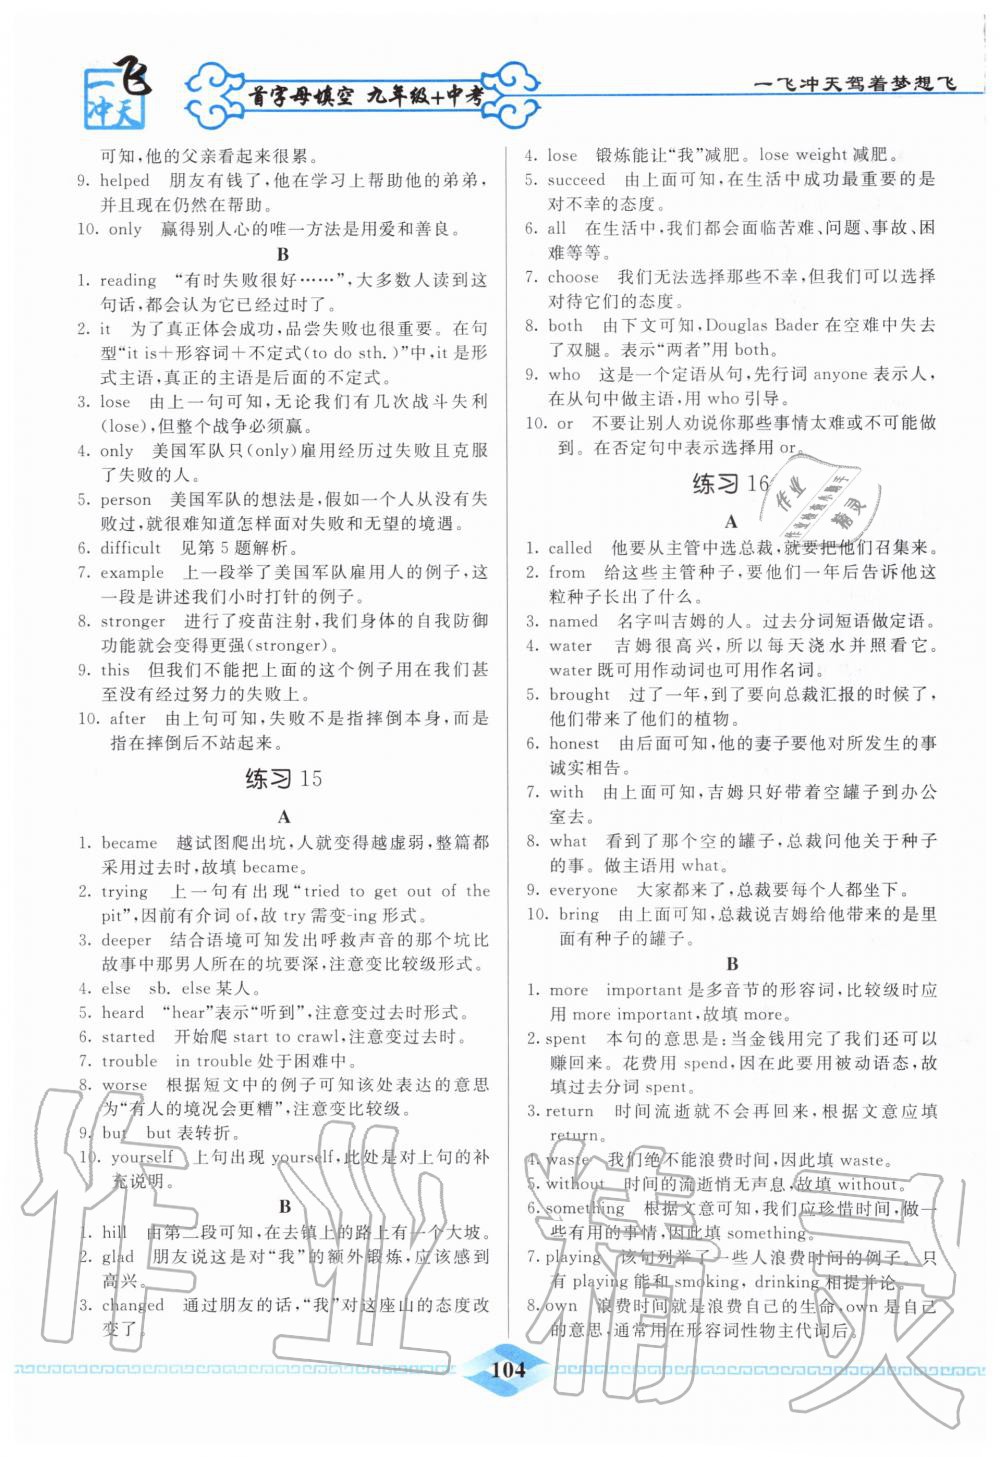 一飞冲天
首字母填空 九年级+中考
一飞冲天驾着梦想飞
可知,他的父亲看起来很累。
9. helped 朋友有钱了,他在学习上帮助他的弟弟,
并且现在仍然在帮助。
10. only 赢得别人心的唯一方法是用爱和善良。
B
1. reading “有时失败很好……”,大多数人读到这
句话,都会认为它已经过时了。
2. it 为了真正体会成功,品尝失败也很重要。在句
型“it is+形容词+不定式(to do sth.)”中,it是形
式主语,真正的主语是后面的不定式。
3. lose 由上一句可知,无论我们有几次战斗失利
(lose),但整个战争必须赢。
4. only 美国军队只(only)雇用经历过失败且克服
了失败的人。
5. person 美国军队的想法是,假如一个人从没有失
败过,就很难知道怎样面对失败和无望的境遇。
6. difficult 见第5题解析。
7. example 上一段举了美国军队雇用人的例子,这
一段是讲述我们小时打针的例子。
8. stronger 进行了疫苗注射,我们身体的自我防御
功能就会变得更强(stronger)。
9. this 但我们不能把上面的这个例子用在我们甚
至没有经过努力的失败上。
10. after 由上句可知,失败不是指摔倒本身,而是
指在摔倒后不站起来。
练习 15
A
1. became 越试图爬出坑,人就变得越虚弱,整篇都
采用过去时,故填became。
2. trying 上一句有出现“tried to get out of the
pit”,因前有介词of,故try需变-ing形式。
3. deeper 结合语境可知发出呼救声音的那个坑比
故事中那男人所在的坑要深,注意变比较级形式。
4. else sb. else某人。
5. heard “hear”表示“听到”,注意变过去时形式。
6. started 开始爬start to crawl,注意变过去时。
7. trouble in trouble处于困难中。
8. worse 根据短文中的例子可知该处表达的意思
为“有人的境况会更糟”,注意变比较级。
9. but but表转折。
10. yourself 上句出现yourself,此处是对上句的补
充说明。
B
1. hill 由第二段可知,在去镇上的路上有一个大坡。
2. glad 朋友说这是对“我”的额外锻炼,应该感到
高兴。
3. changed 通过朋友的话,“我”对这座山的态度改
变了。
4. lose 锻炼能让“我”减肥。lose weight减肥。
5. succeed 由上面可知,在生活中成功最重要的是
对不幸的态度。
6. all 在生活中,我们都会面临苦难、问题、事故、困
难等等。
7. choose 我们无法选择那些不幸,但我们可以选择
对待它们的态度。
8. both 由下文可知,Douglas Bader在空难中失去
了双腿。表示“两者”用both。
9. who 这是一个定语从句,先行词anyone表示人,
在从句中做主语,用who引导。
10. or 不要让别人劝说你那些事情太难或不可能做
到。在否定句中表示选择用or。
练习 16
A
1. called 他要从主管中选总裁,就要把他们召集来。
2. from 给这些主管种子,要他们一年后告诉他这
粒种子长出了什么。
3. named 名字叫吉姆的人。过去分词短语做定语。
4. water 吉姆很高兴,所以每天浇水并照看它。
water既可用作动词也可用作名词。
5. brought 过了一年,到了要向总裁汇报的时候了,
他们带来了他们的植物。
6. honest 由后面可知,他的妻子要他对所发生的事
诚实相告。
7. with 由上面可知,吉姆只好带着空罐子到办公
室去。
8. what 看到了那个空的罐子,总裁问他关于种子
的事。做主语用what。
9. everyone 大家都来了,总裁要每个人都坐下。
10. bring 由上面可知,总裁说吉姆给他带来的是里
面有种子的罐子。
B
1. more important是多音节的形容词,比较级时应
用more important,故填more。
2. spent 本句的意思是:当金钱用完了我们还可以
赚回来。花费用spend,因在此要用被动语态,故
填过去分词spent。
3. return 时间流逝就不会再回来,根据文意应填
return。
4. waste 我们绝不能浪费时间,因此填waste。
5. without 时间的流逝悄无声息,故填without。
6. something 根据文意可知,我们应珍惜时间,做一
些有用的事情,因此填something。
7. playing 该句列举了一些人浪费时间的例子。只
有playing能和smoking, drinking相提并论。
8. own 浪费时间就是浪费自己的生命,own是自己
的意思,通常用在形容词性物主代词后。
104
作业精灵